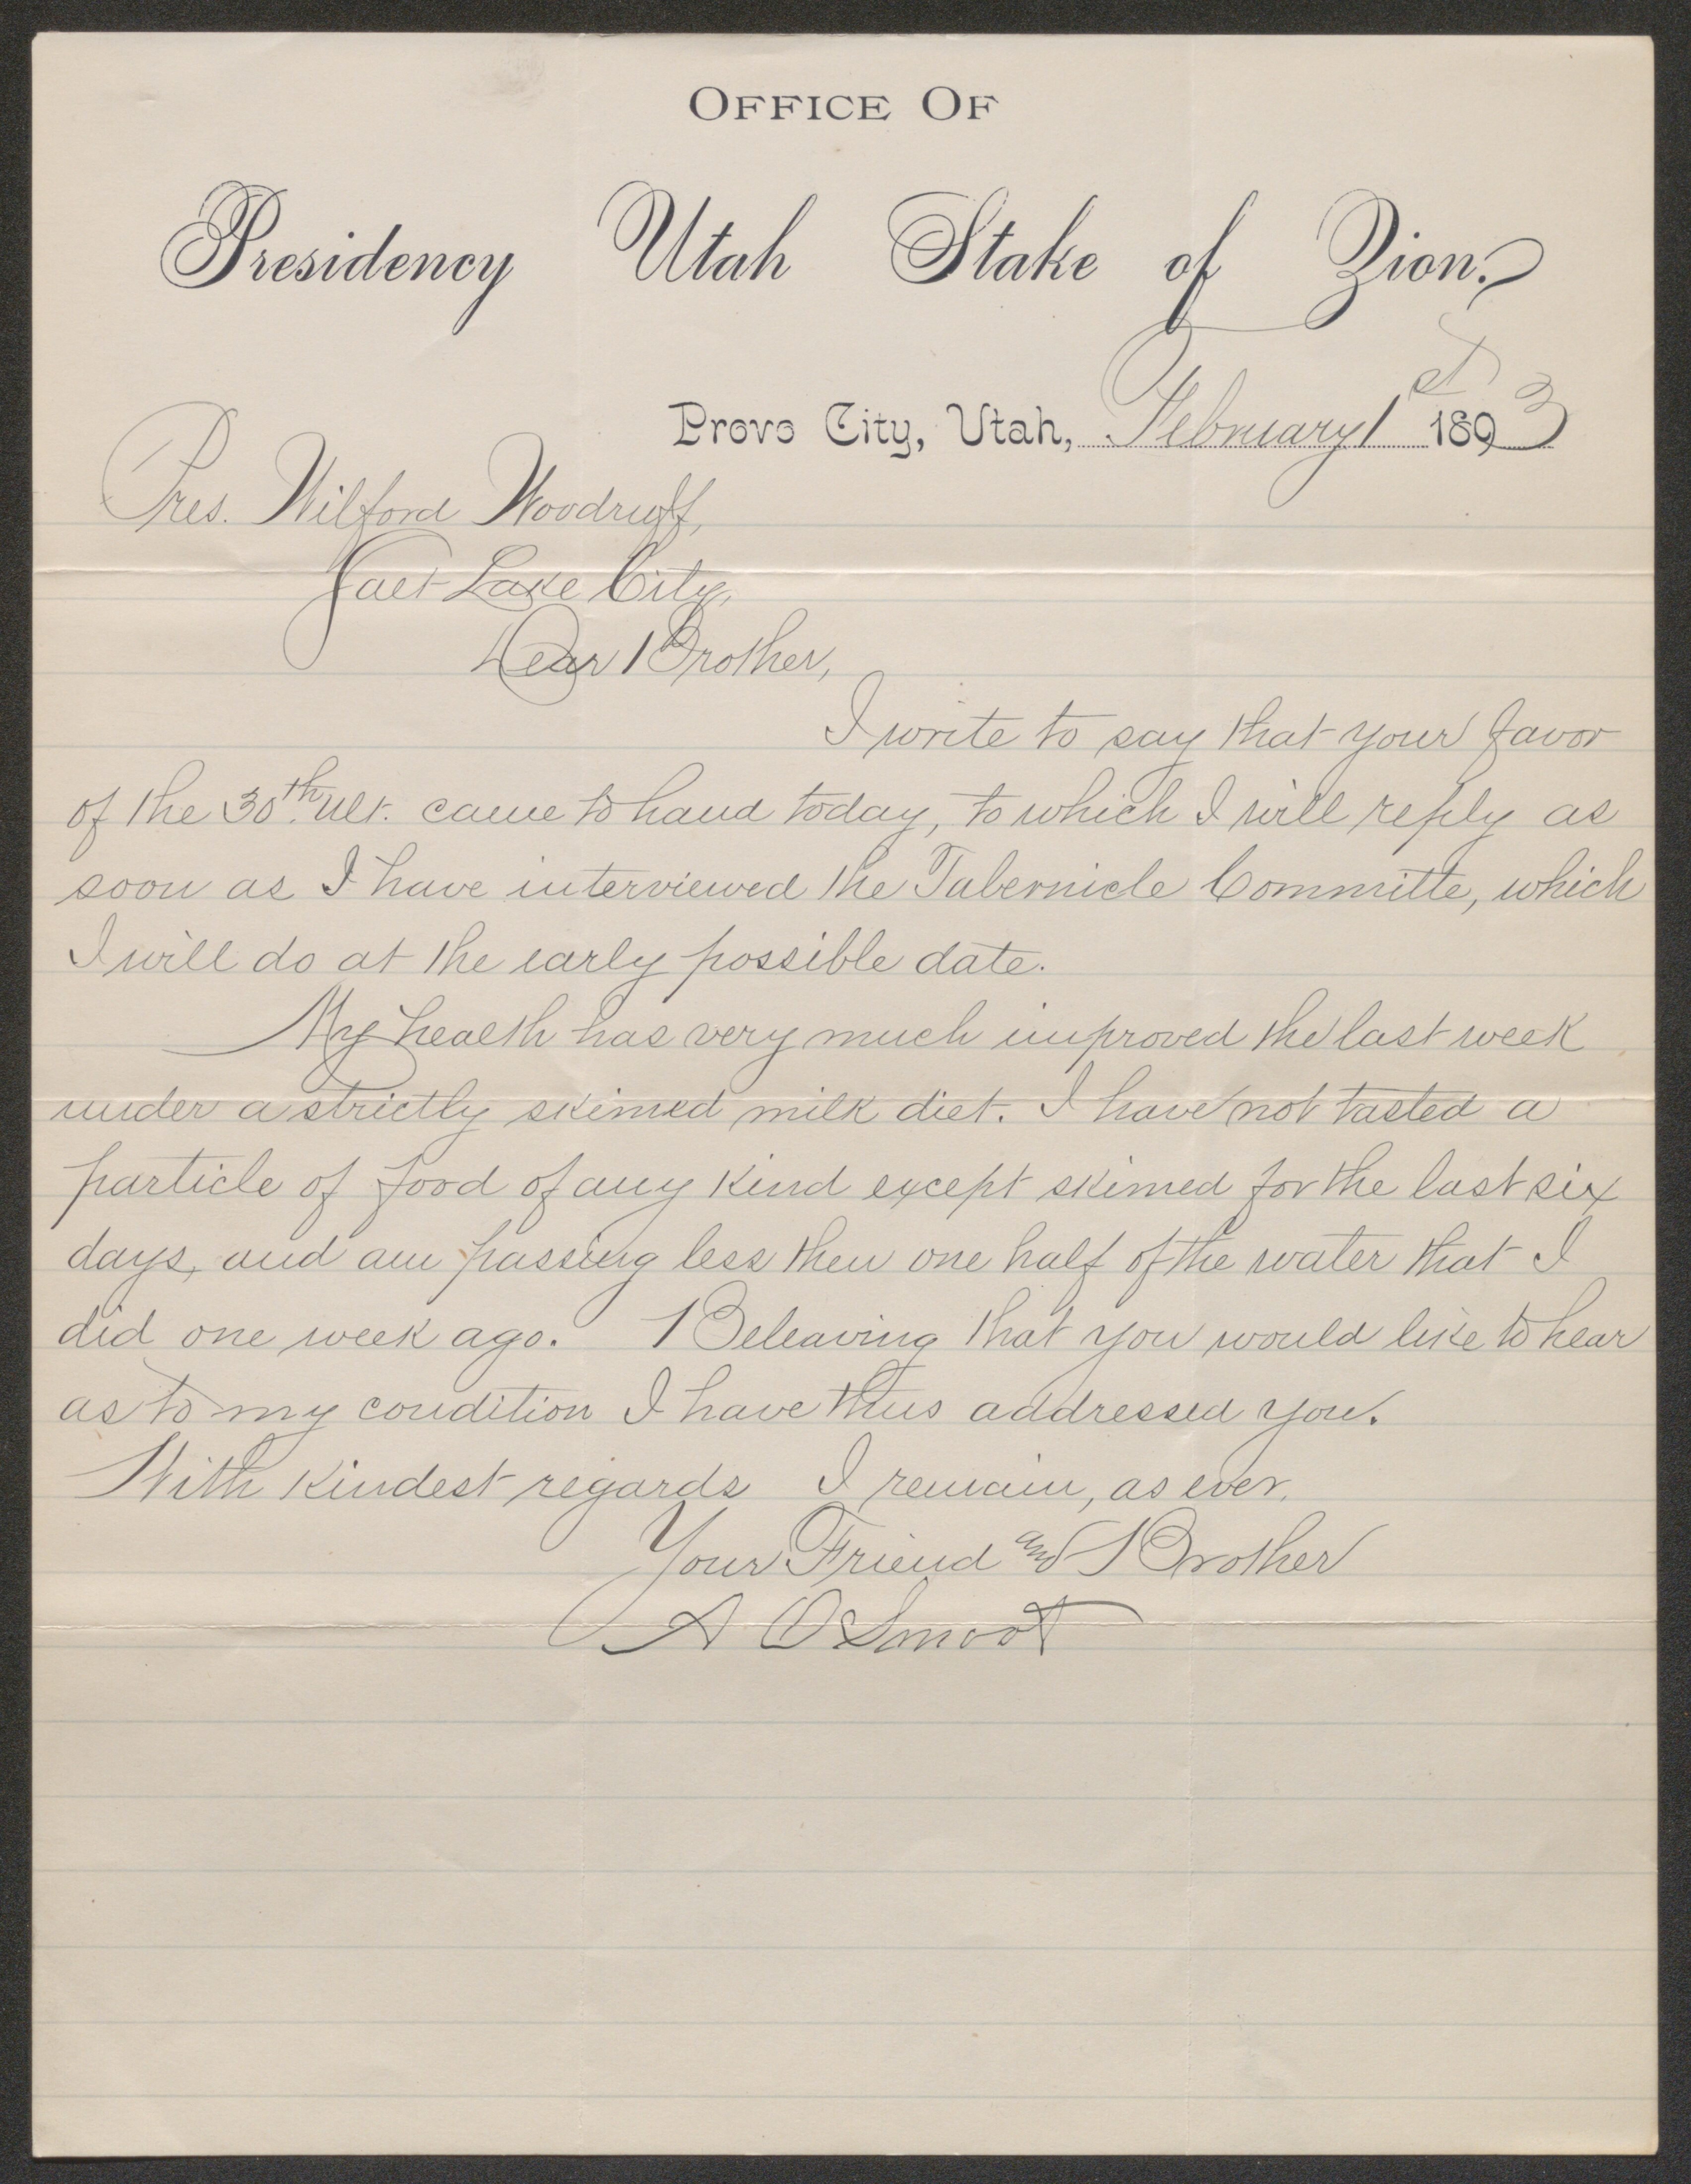 OFFICE OF
Presidency Utah Stake of Zion.
Provo City, Utah, February 1st 1893
Pres. Wilford Woodruff,
Salt Lake City,
Dear Brother,
I write to say that your favor
of the 30th. ult. came to hand today, to which I will reply as
soon as I have interviewed the Tabernicle Committe, which
I will do at the early possible date.
My health has very much improved the last week
under a strictly skimed milk diet. I have not tasted a
particle of food of any kind except skimed for the last six
days, and am passing less then one half of the water that I
did one week ago. Beleaving that you would like to hear
as to my condition I have thus addressed you.
With kindest regards I remain, as ever.
Your Friend and Brother
A O Smoot